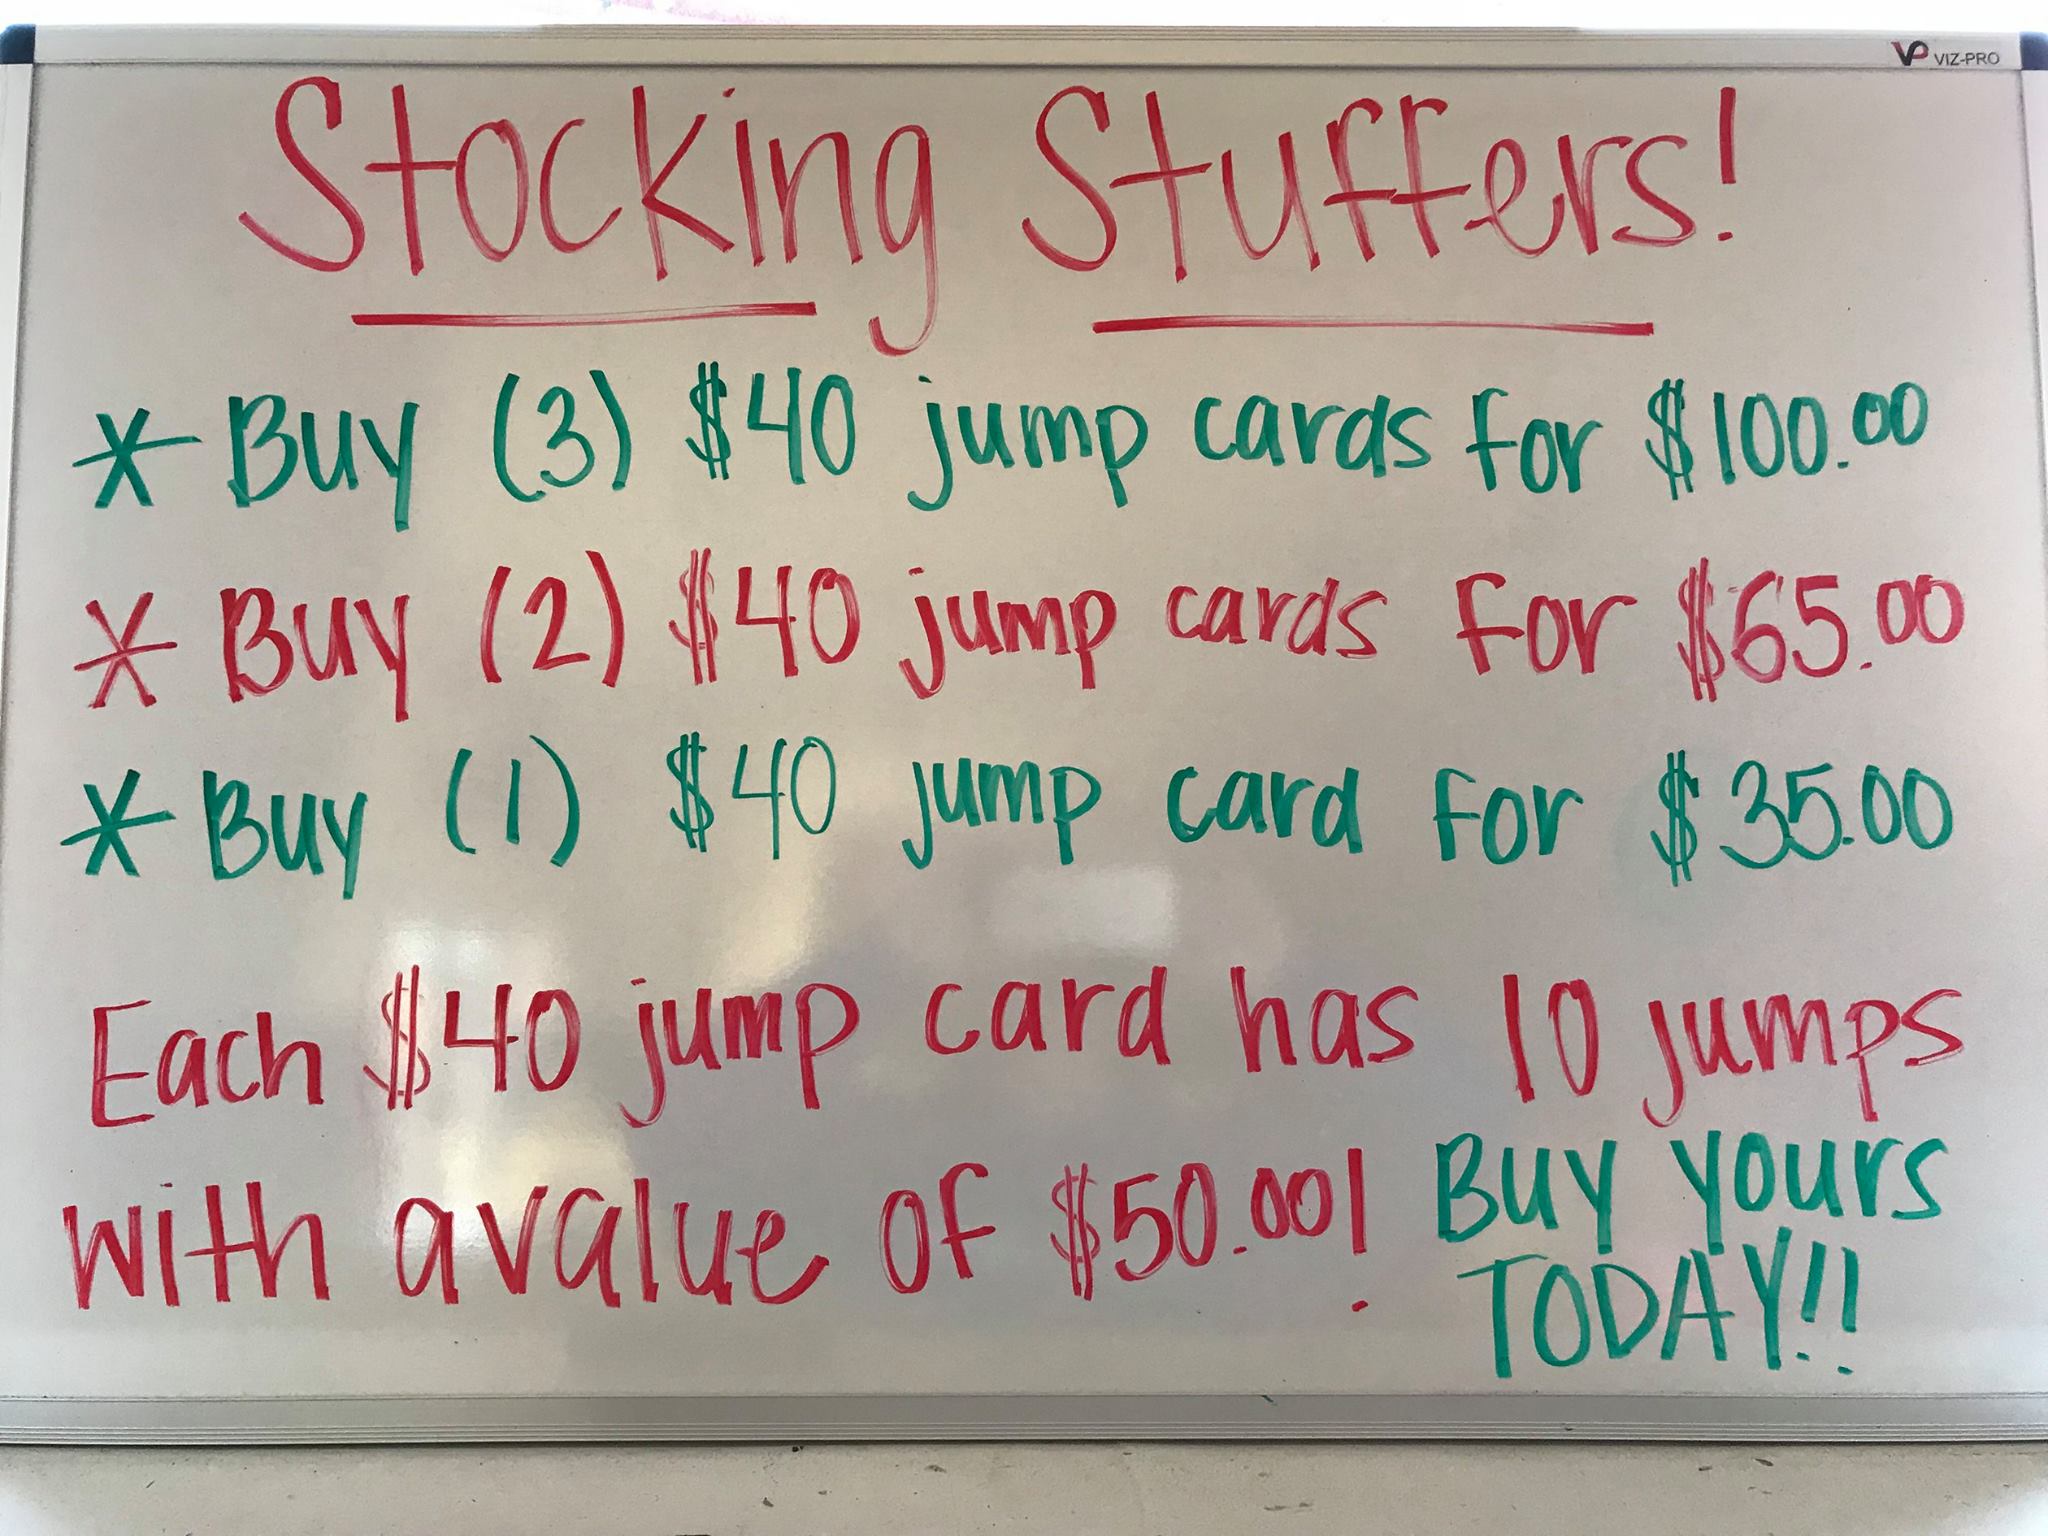 VP VIZ-PRO
Stocking Stuffers!
* Buy (3) $40 jump cards for $100.00
* Buy (2) $40 jump cards for $65.00
* Buy (1) $40 jump card for $35.00
Each $40 jump card has 10 jumps
with a value of $50.00!
Buy yours
TODAY!!